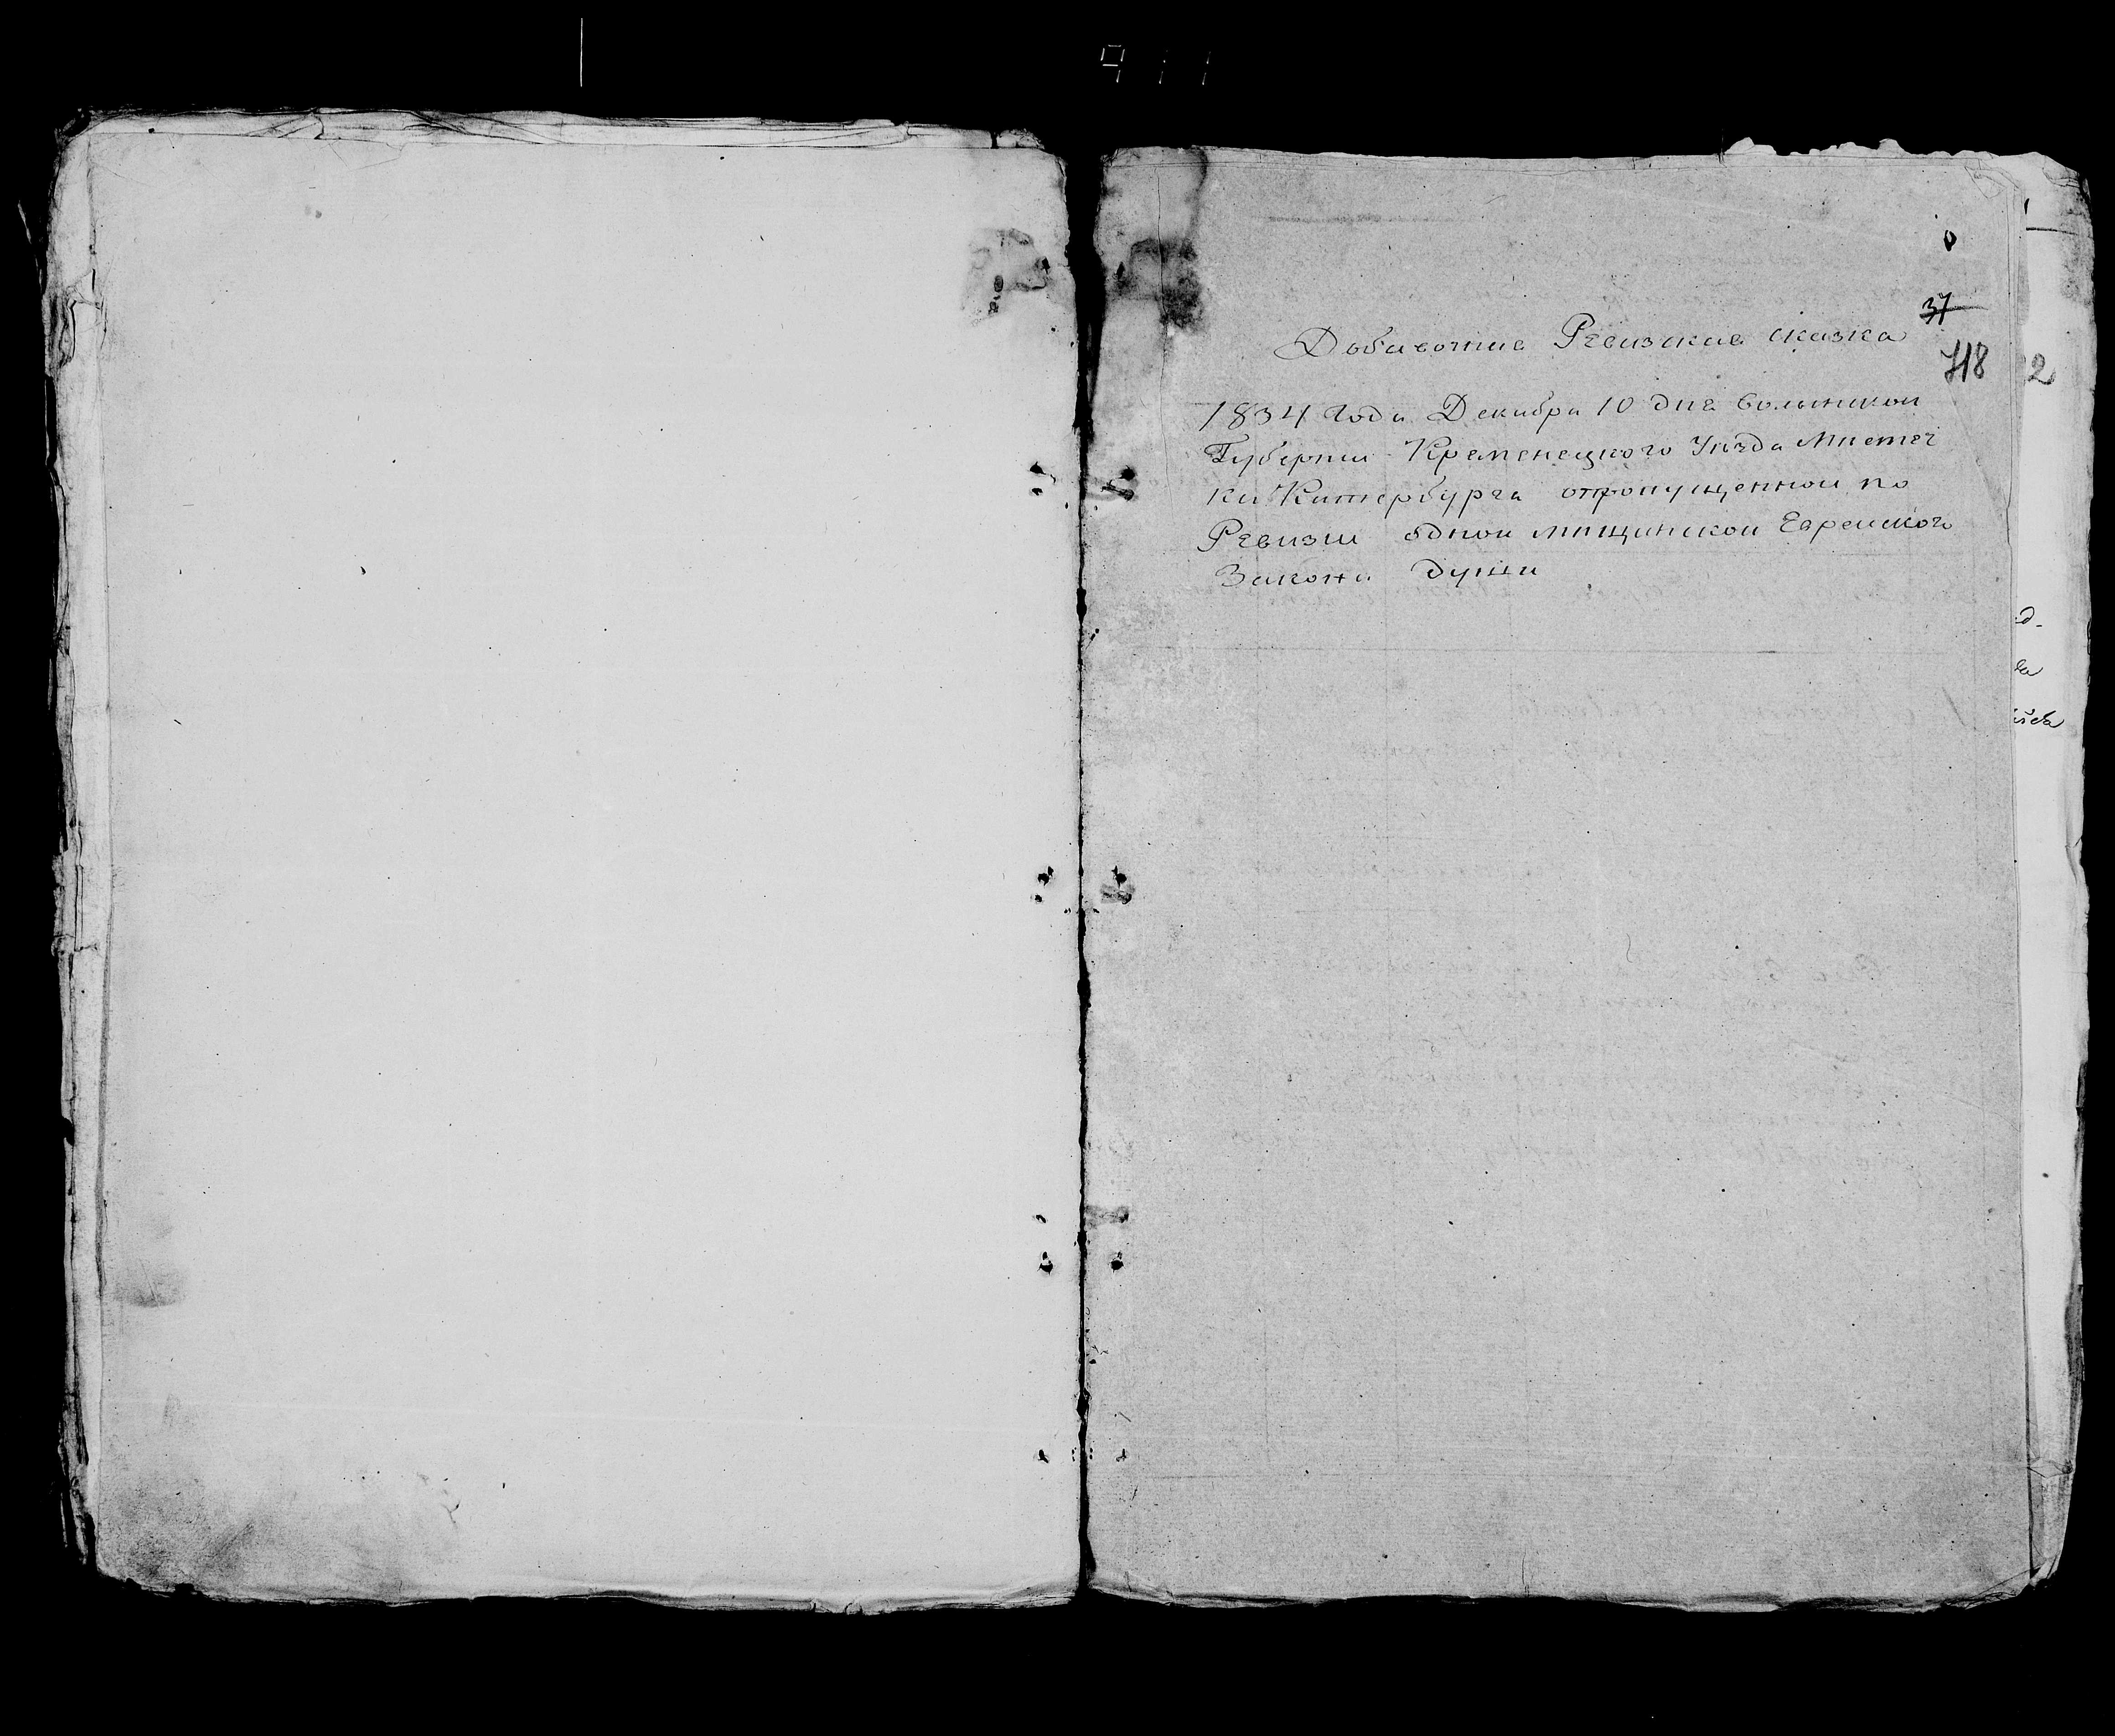 37
Добавочная Ревизская сказка
718
1834 Года Декабря 10 дня Волынской
Губернии Кременецкого Уѣзда Мѣстеч
ка Катербурга опропущенной по
Ревизии одной мѣщанской Еврейского
Закона души